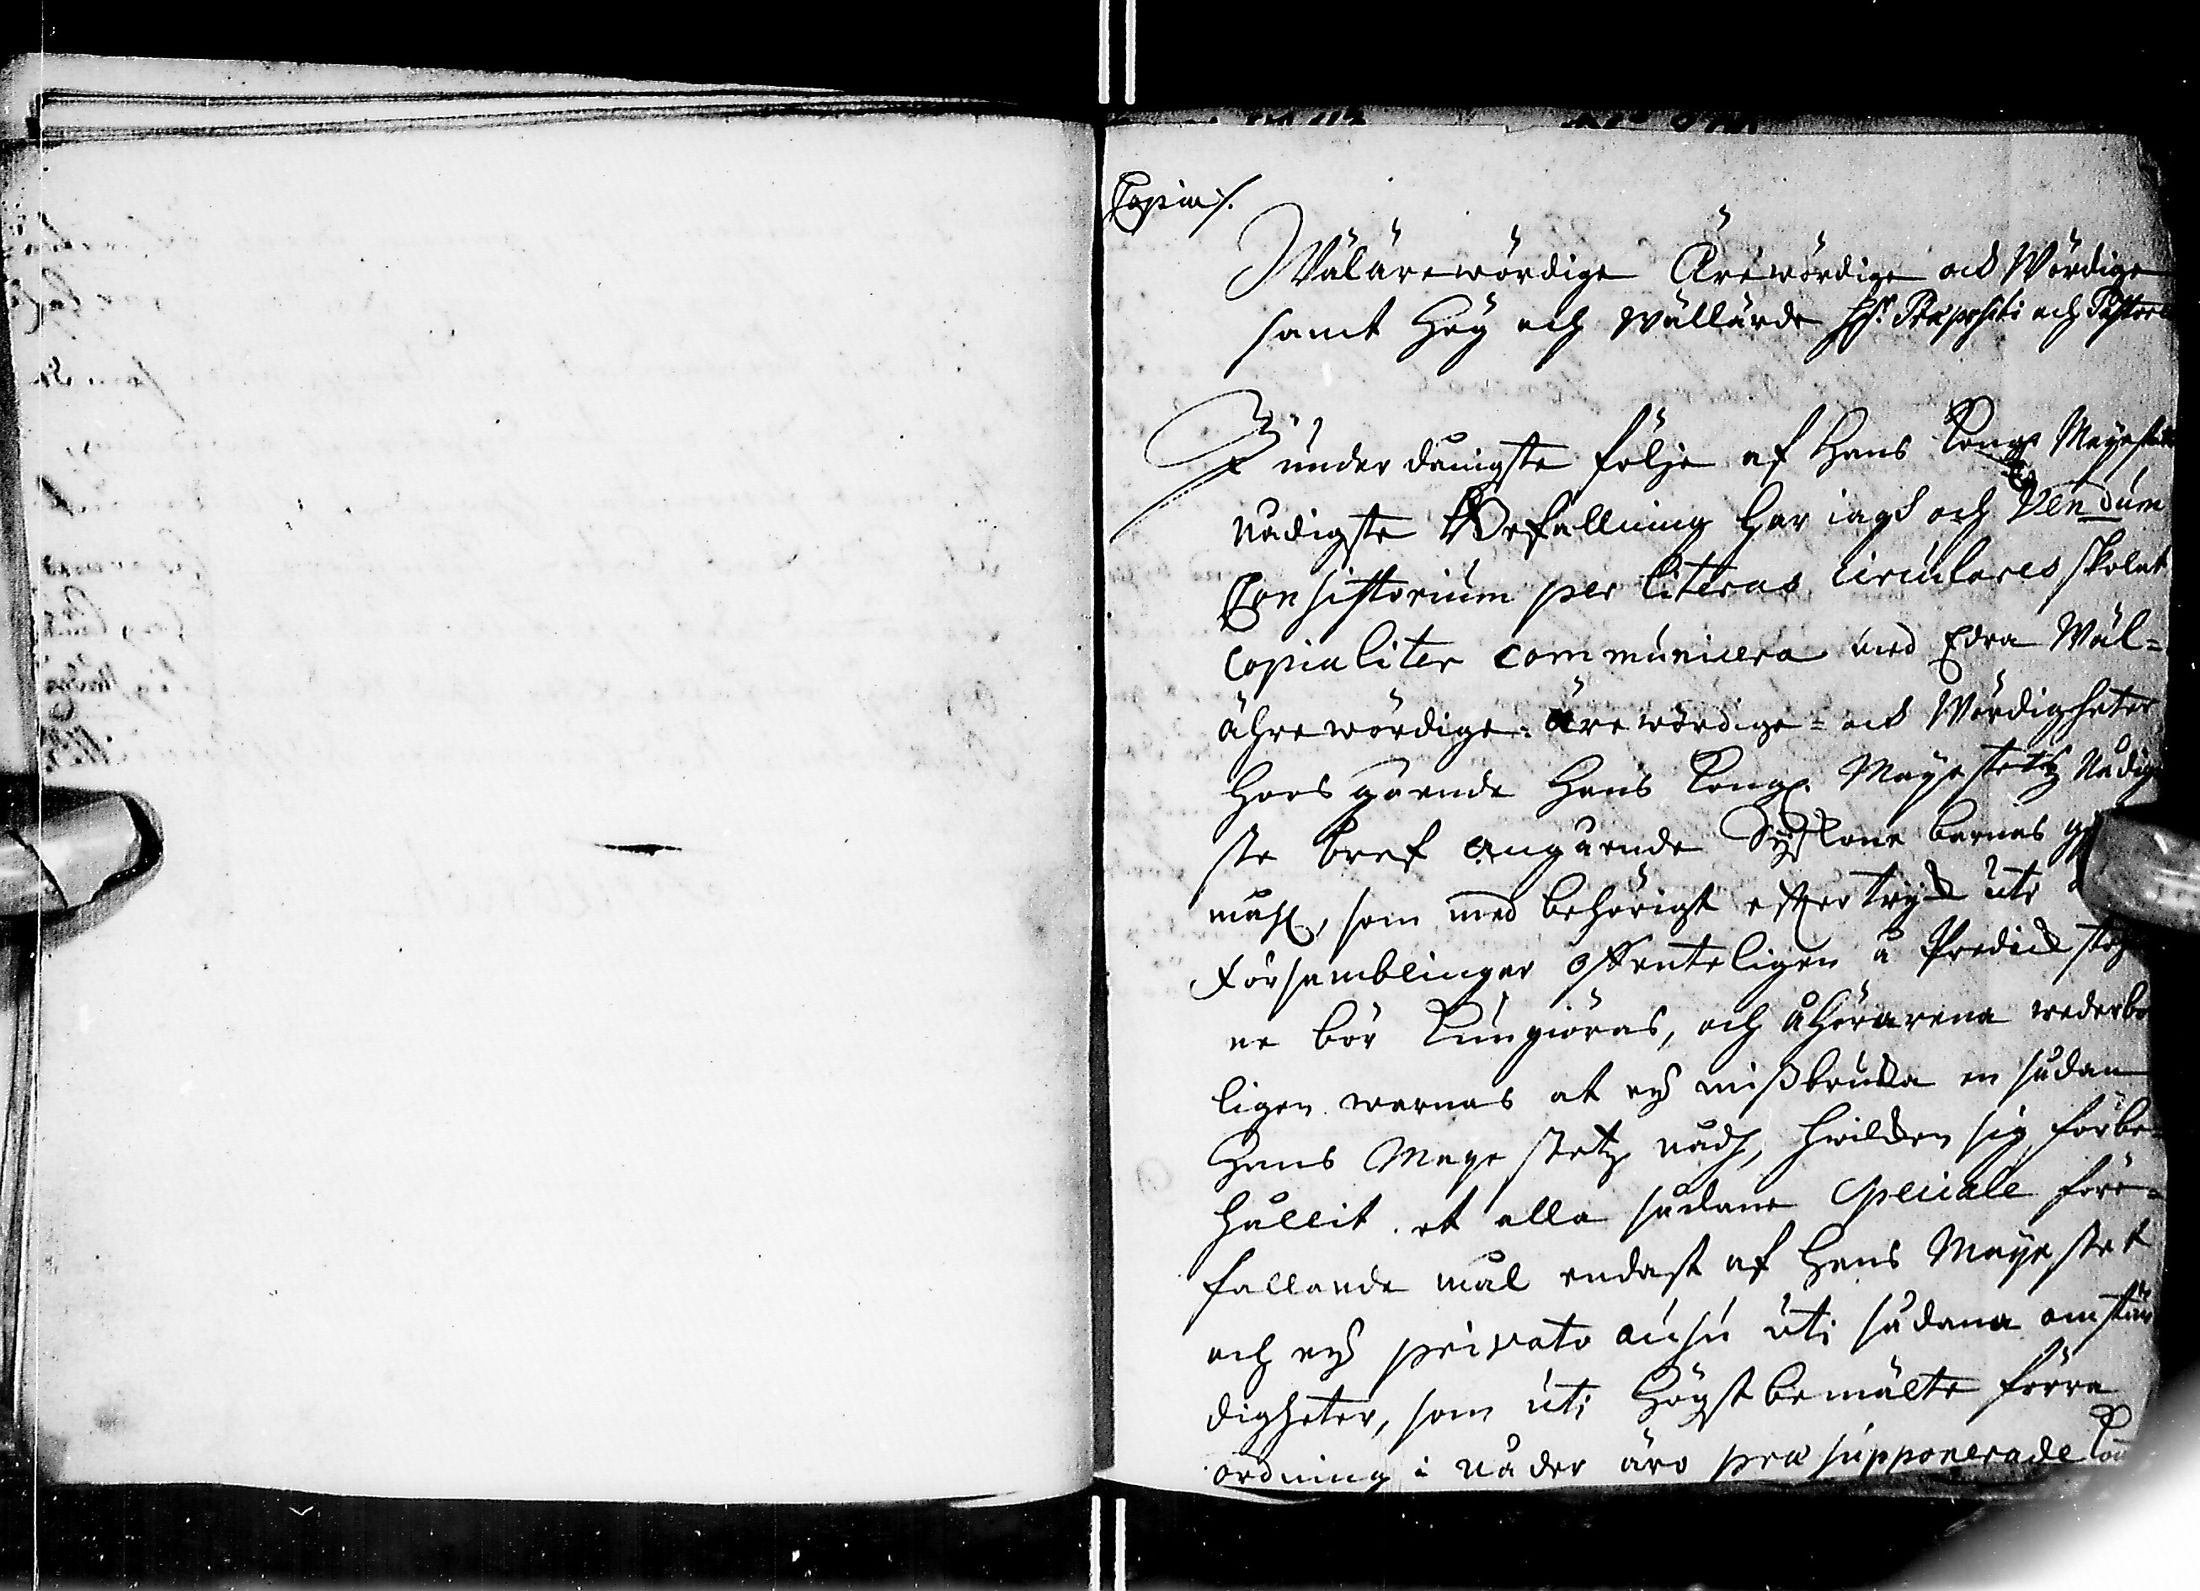 Copia /.
Wälärewördige Ärewördige och Wördige
samt Höÿ och Wällärde HH. Præpositi och Pastores
I underdånigste följe af Hans Kongl. Mayestetz
Nådigste Befallning har iagh och Ven_dum
Consistorium per literas circulares skolat
copialiter communicera med Edra Wäl=
ährewördige= Ärewördige= och Wördigheter
hoosgående Hans Kongl. Mayestetz Nådig
ste bref angående Syskonebarnas
mähl, som med behörigt eftertryck uti
Församblingar offenteligen å Predickstoh
ne bör Kungiöras, och åhörarena wederbör
ligen warnas at eÿ mißbruka en sådan
Hans Mayestetz nådh, hwilcken sig förbe=
hållit at alla sådane speciale före=
fallande mål endast af Hans Mayestet
och eÿ privato ausu uti sådana omstän
digheter, som uti Högstbemälte förra
ordning i nåder äro præsupponerade